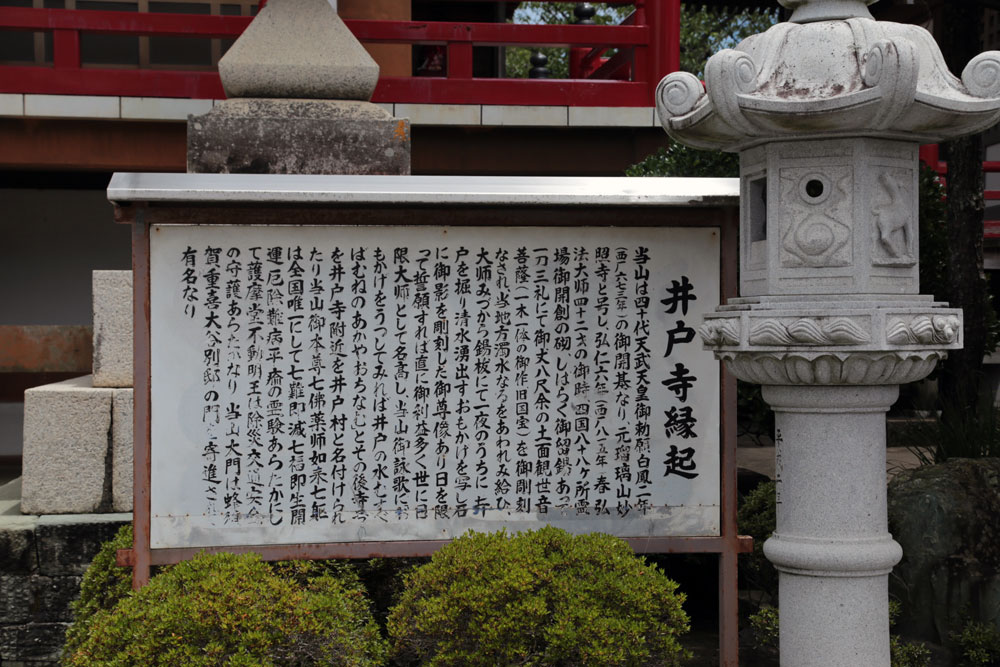 井戸寺縁起
当山は四十代天武天皇御勅願白鳳二年
(西六七三年)の御開基なり元瑠璃山妙
照寺と号し弘仁六年(西八一五年)春弘
法大師四十二才の御時四国八十八ケ所霊
場御開創の砌、しばらく御留錫あって
一刀三礼にて御丈八尺余の十一面観世音
菩薩(一木一体の御作旧国宝)を御彫刻
なされ当地方濁水なるをあわれみ給ひ
大師みづから錫杖にて一夜のうちに井
戸を掘り清水湧出すおもかげを写し石
に御影を彫刻した御尊像あり日を限
って誓願すれば直に御利益多く世に日
限大師として名高し、当山御詠歌にお
もかげをうつしてみれば井戸の水むすべ
ばむねのあかやおちなむとその後寺
を井戸寺附近を井戸村と名付けられ
たり当山御本尊七佛薬師如来七躯
は全国唯一にして七難即滅七福即生開
運厄除難病平癒の霊験あらたかにし
て護摩堂不動明王は除災
の守護あらたかなり当山大門は蜂須
賀重喜大谷別邸の門 寄進さ
有名なり